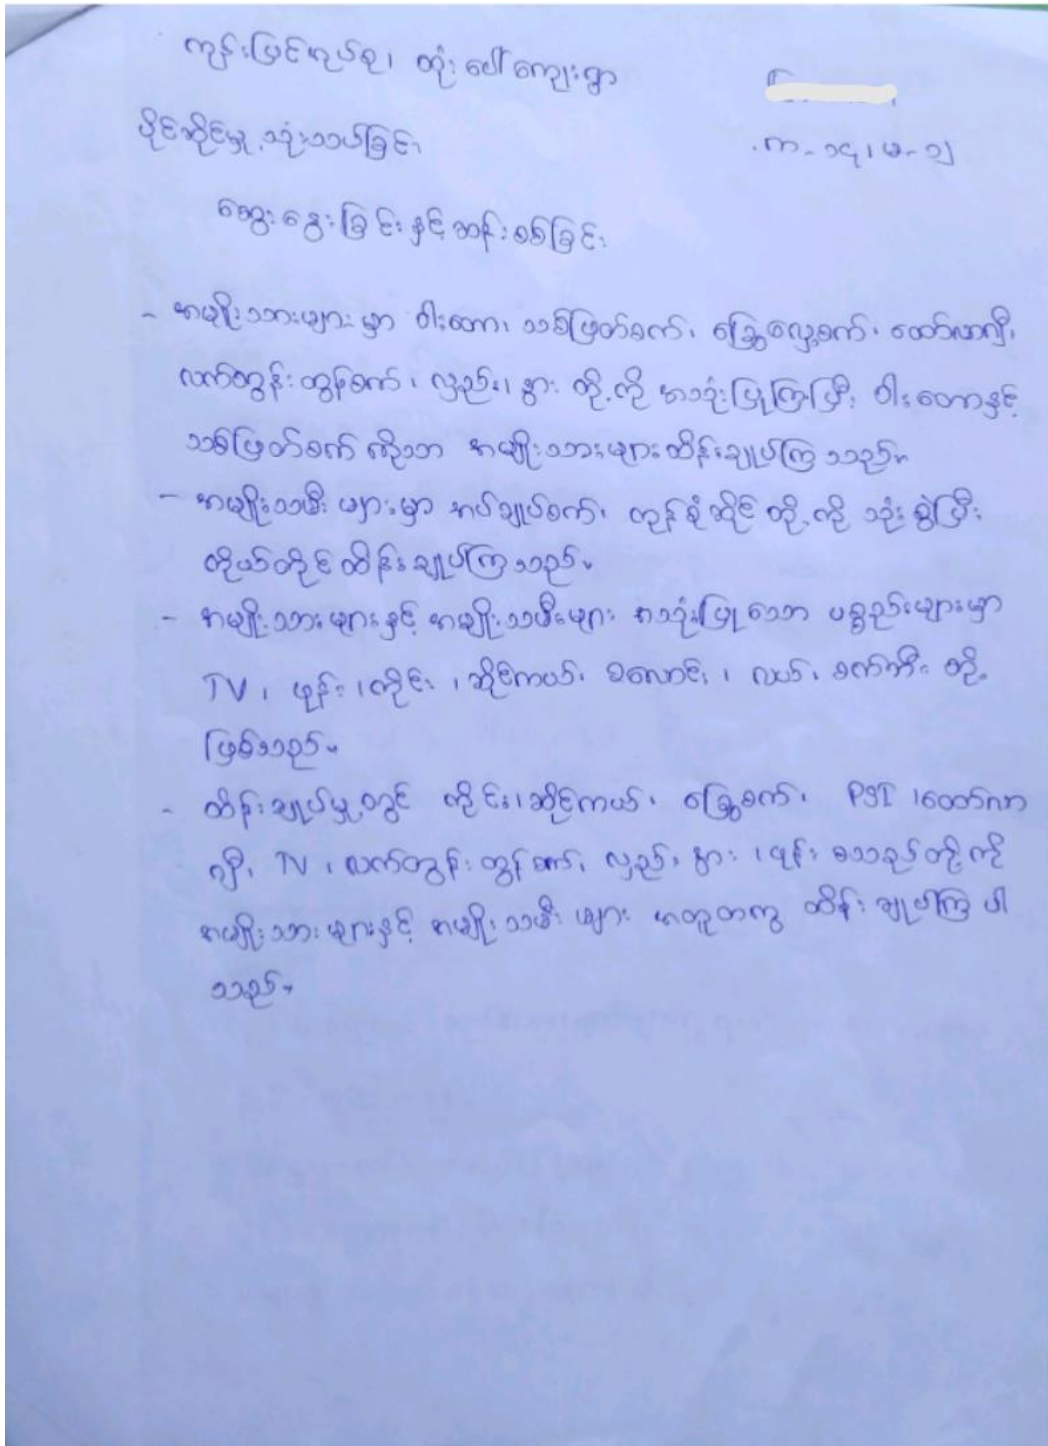 ကုန်းမြင့်အုပ်စု၊ တုံးပေါ်ကျေးရွာ
ပိုင်ဆိုင်မှု့သုံးသပ်ခြင်း
က-၁၄၊ မ-၁၂
ဆွေးနွေးခြင်းနှင့်ဆန်းစစ်ခြင်း
- အမျိုးသားများမှာ ဝါးတော၊ သစ်ဖြတ်စက်၊ ခြွေလှေ့စက်၊ ထော်လာဂျီ၊
လက်တွန်းထွန်စက်၊ လှည်း၊ နွား တို့ကို အသုံးပြုကြပြီး ဝါးတောနှင့်
သစ်ဖြတ်စက် ကိုသာ အမျိုးသားများထိန်းချုပ်ကြသည်။
- အမျိုးသမီး များမှာ အပ်ချုပ်စက်၊ ကုန်စုံဆိုင် တို့ကို သုံးစွဲပြီး
ကိုယ်တိုင်ထိန်းချုပ်ကြသည်။
- အမျိုးသားများနှင့် အမျိုးသမီးများ အသုံးပြုသော ပစ္စည်းများမှာ
TV၊ ဖုန်း၊ ကိုင်း၊ ဆိုင်ကယ်၊ မီလောင်း၊ လယ်၊ စက်ဘီး တို့
ဖြစ်သည်။
- ထိန်းချုပ်မှု့တွင် ကိုင်း၊ ဆိုင်ကယ်၊ ခြွေစက်၊ PSI ၊ ထော်လာ
ဂျီ၊ TV ၊ လက်တွန်းထွန်စက်၊ လှည်း၊ နွား၊ ဖုန်း စသည်တို့ကို
အမျိုးသားများနှင့် အမျိုးသမီးများ အတူတကွ ထိန်းချုပ်ကြပါ
သည်။